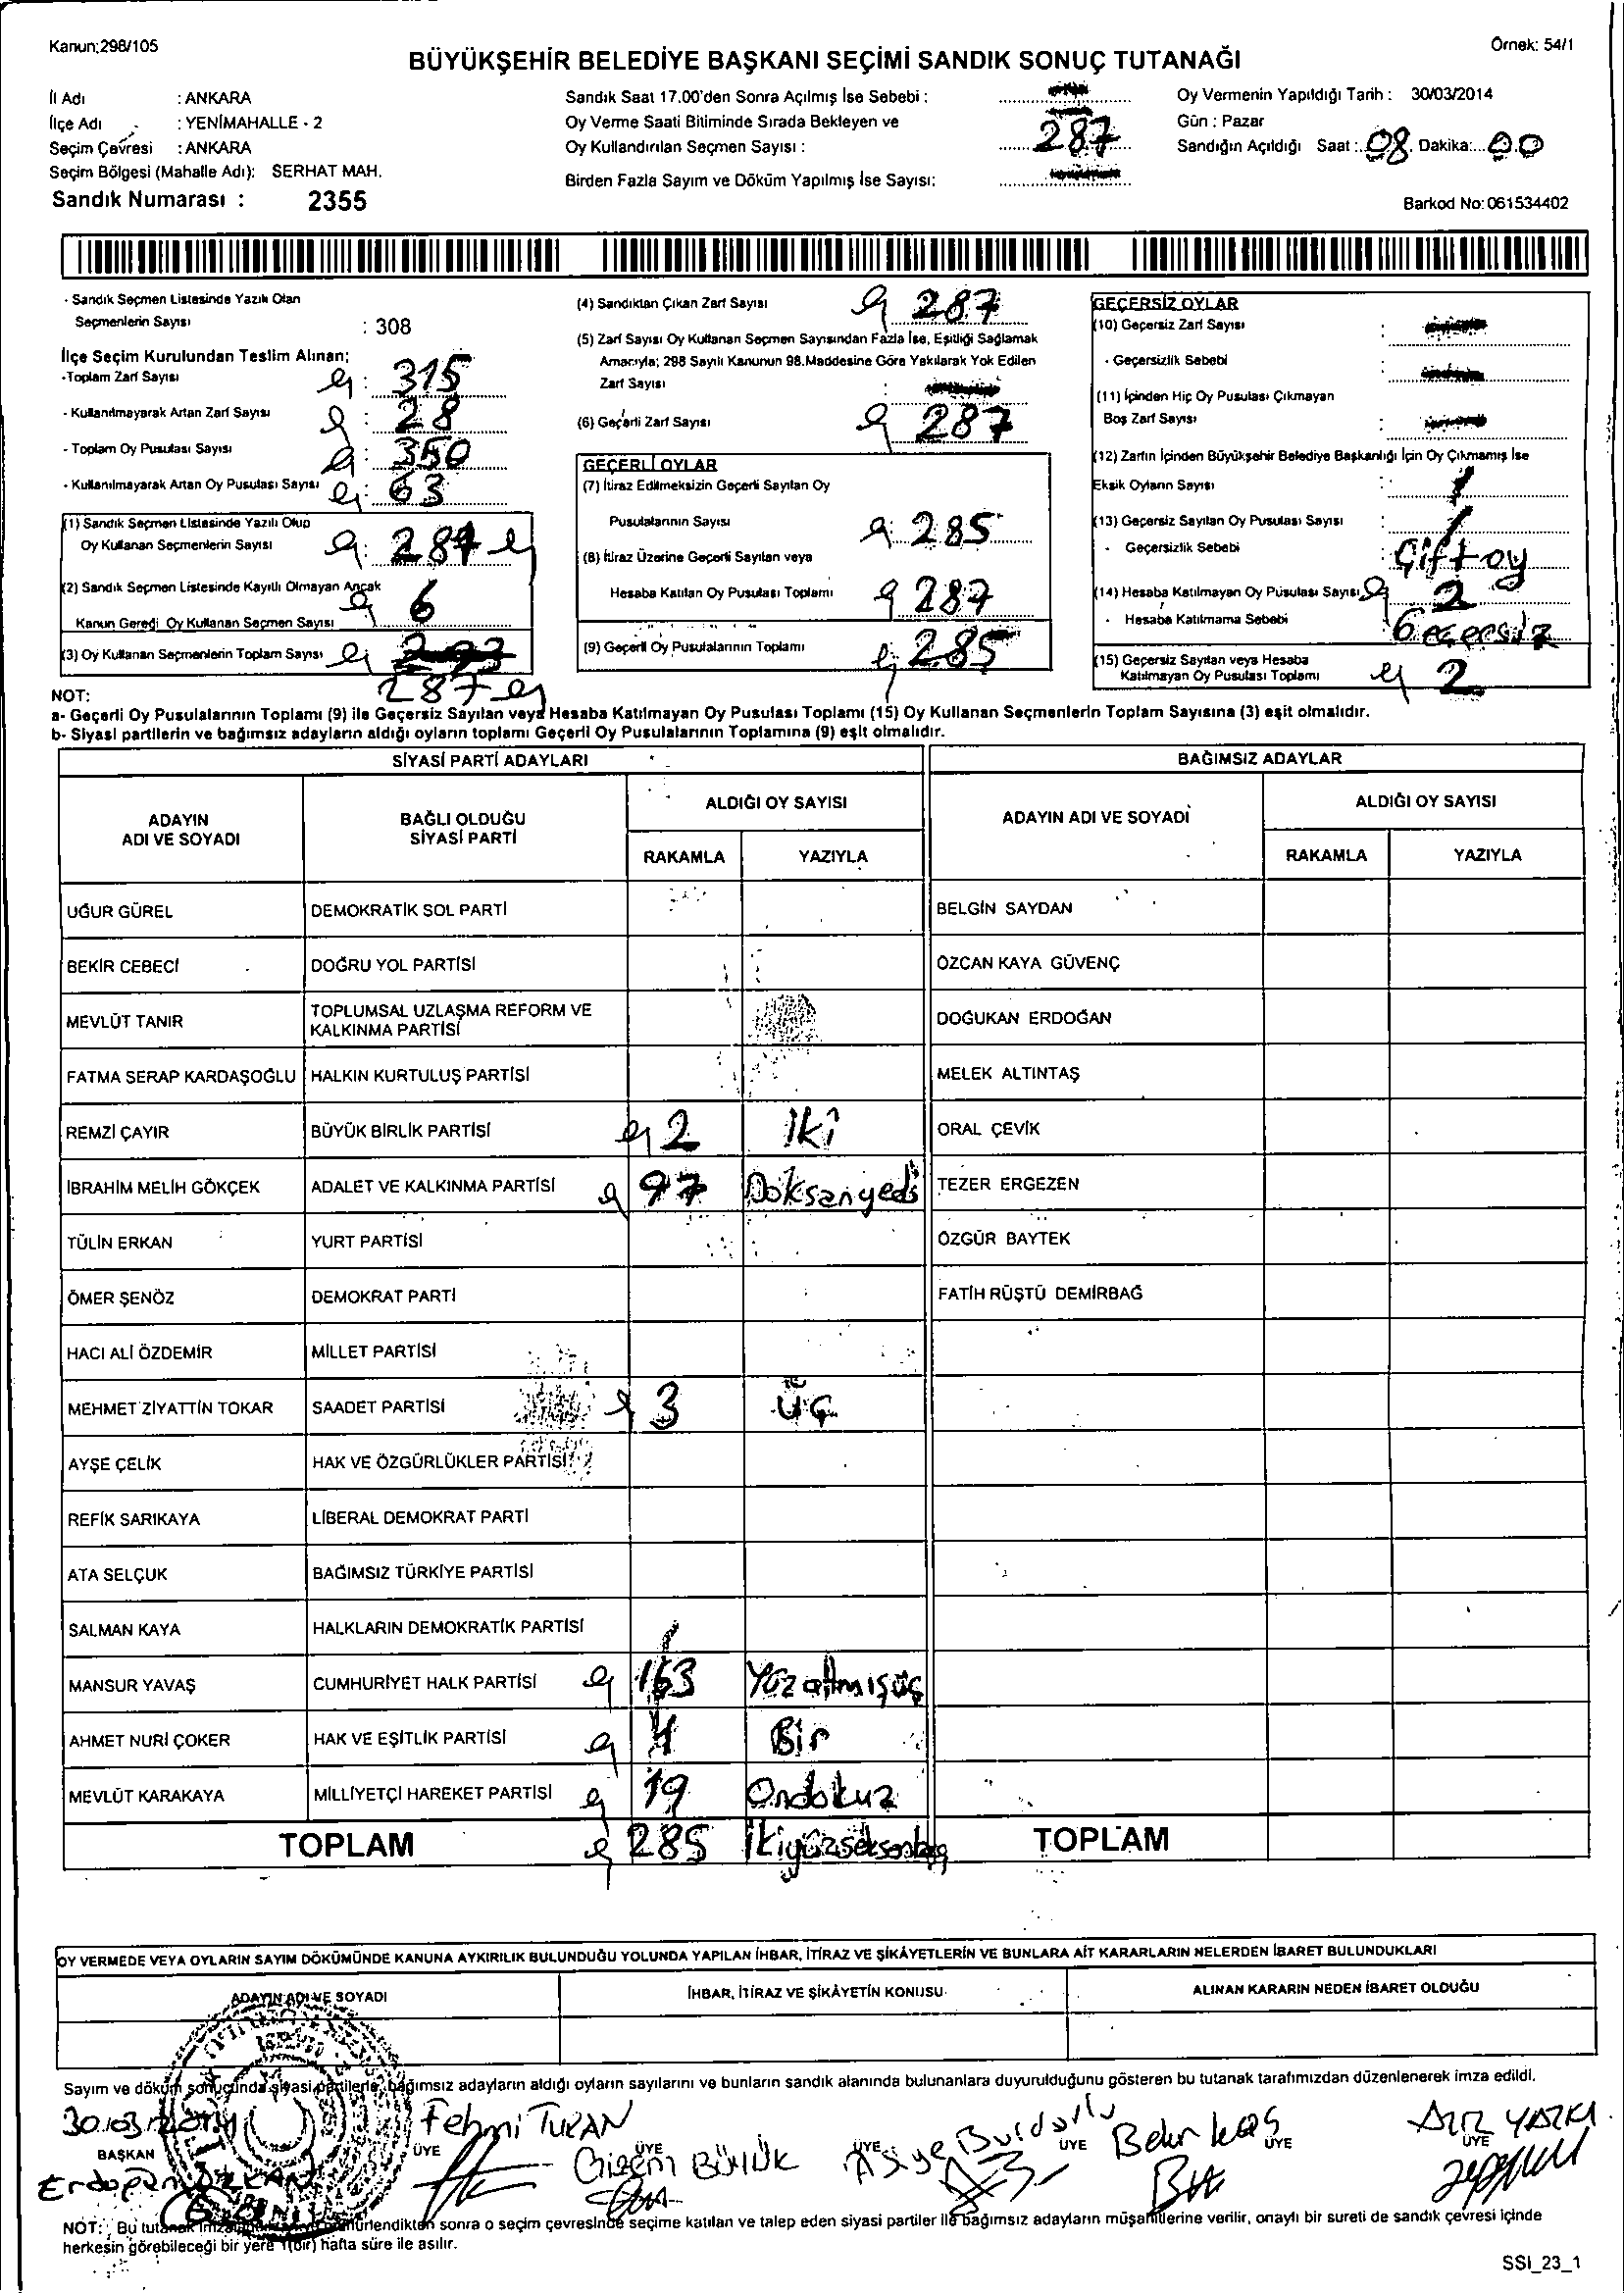 Kanun;298/105
Örnek: 54/1
BÜYÜKŞEHİR BELEDİYE BAŞKANI SEÇİMİ SANDIK SONUÇ TUTANAĞI
İl Adı : ANKARA
İlçe Adı : YENİMAHALLE - 2
Seçim Çevresi : ANKARA
Seçim Bölgesi (Mahalle Adı): SERHAT MAH.
Sandık Numarası : 2355
Sandık Saat 17.00'den Sonra Açılmış İse Sebebi :
Oy Verme Saati Bitiminde Sırada Bekleyen ve
Oy Kullandırılan Seçmen Sayısı : 287
Birden Fazla Sayım ve Döküm Yapılmış İse Sayısı:
Oy Vermenin Yapıldığı Tarih : 30/03/2014
Gün : Pazar
Sandığın Açıldığı Saat : 08 Dakika: 00
Barkod No: 061534402
- Sandık Seçmen Listesinde Yazılı Olan
Seçmenlerin Sayısı : 308
İlçe Seçim Kurulundan Teslim Alınan;
-Toplam Zarf Sayısı : 315
- Kullanılmayarak Artan Zarf Sayısı : 28
- Toplam Oy Pusulası Sayısı : 350
- Kullanılmayarak Artan Oy Pusulası Sayısı : 63
(1) Sandık Seçmen Listesinde Yazılı Olup
Oy Kullanan Seçmenlerin Sayısı : 287
(2) Sandık Seçmen Listesinde Kayıtlı Olmayan Ancak
Kanun Gereği Oy Kullanan Seçmen Sayısı 6
(3) Oy Kullanan Seçmenlerin Toplam Sayısı 293
287
(4) Sandıktan Çıkan Zarf Sayısı 287
(5) Zarf Sayısı Oy Kullanan Seçmen Sayısından Fazla İse, Eşitliği Sağlamak
Amacıyla; 298 Sayılı Kanunun 98.Maddesine Göre Yakılarak Yok Edilen
Zarf Sayısı :
(6) Geçerli Zarf Sayısı 287
GEÇERLİ OYLAR
(7) İtiraz Edilmeksizin Geçerli Sayılan Oy
Pusulalarının Sayısı : 285
(8) İtiraz Üzerine Geçerli Sayılan veya
Hesaba Katılan Oy Pusulası Toplamı 287
(9) Geçerli Oy Pusulalarının Toplamı : 285
GEÇERSİZ OYLAR
(10) Geçersiz Zarf Sayısı :
- Geçersizlik Sebebi :
(11) İçinden Hiç Oy Pusulası Çıkmayan
Boş Zarf Sayısı :
(12) Zarfın İçinden Büyükşehir Belediye Başkanlığı İçin Oy Çıkmamış İse
Eksik Oyların Sayısı :
(13) Geçersiz Sayılan Oy Pusulası Sayısı :
- Geçersizlik Sebebi : Çift oy
(14) Hesaba Katılmayan Oy Pusulası Sayısı 2
- Hesaba Katılmama Sebebi : Geçersiz
(15) Geçersiz Sayılan veya Hesaba
Katılmayan Oy Pusulası Toplamı 2
NOT:
a- Geçerli Oy Pusulalarının Toplamı (9) ile Geçersiz Sayılan veya Hesaba Katılmayan Oy Pusulası Toplamı (15) Oy Kullanan Seçmenlerin Toplam Sayısına (3) eşit olmalıdır.
b- Siyasi partilerin ve bağımsız adayların aldığı oyların toplamı Geçerli Oy Pusulalarının Toplamına (9) eşit olmalıdır.
SİYASİ PARTİ ADAYLARI
BAĞIMSIZ ADAYLAR
ADAYIN
ADI VE SOYADI
BAĞLI OLDUĞU
SİYASİ PARTİ
ALDIĞI OY SAYISI
RAKAMLA YAZIYLA
ADAYIN ADI VE SOYADI
ALDIĞI OY SAYISI
RAKAMLA YAZIYLA
UĞUR GÜREL DEMOKRATİK SOL PARTİ BELGİN SAYDAN
BEKİR CEBECİ DOĞRU YOL PARTİSİ ÖZCAN KAYA GÜVENÇ
MEVLÜT TANIR TOPLUMSAL UZLAŞMA REFORM VE
KALKINMA PARTİSİ DOĞUKAN ERDOĞAN
FATMA SERAP KARDAŞOĞLU HALKIN KURTULUŞ PARTİSİ MELEK ALTINTAŞ
REMZİ ÇAYIR BÜYÜK BİRLİK PARTİSİ 2 İki ORAL ÇEVİK
İBRAHİM MELİH GÖKÇEK ADALET VE KALKINMA PARTİSİ 97 Doksanyedi TEZER ERGEZEN
TÜLİN ERKAN YURT PARTİSİ ÖZGÜR BAYTEK
ÖMER ŞENÖZ DEMOKRAT PARTİ FATİH RÜŞTÜ DEMİRBAĞ
HACI ALİ ÖZDEMİR MİLLET PARTİSİ
MEHMET ZİYATTİN TOKAR SAADET PARTİSİ 3 Üç
AYŞE ÇELİK HAK VE ÖZGÜRLÜKLER PARTİSİ
REFİK SARIKAYA LİBERAL DEMOKRAT PARTİ
ATA SELÇUK BAĞIMSIZ TÜRKİYE PARTİSİ
SALMAN KAYA HALKLARIN DEMOKRATİK PARTİSİ
MANSUR YAVAŞ CUMHURİYET HALK PARTİSİ 163 Yüzaltmışüç
AHMET NURİ ÇOKER HAK VE EŞİTLİK PARTİSİ 1 Bir
MEVLÜT KARAKAYA MİLLİYETÇİ HAREKET PARTİSİ 19 Ondokuz
TOPLAM 285 İkiyüzseksenbeş TOPLAM
OY VERMEDE VEYA OYLARIN SAYIM DÖKÜMÜNDE KANUNA AYKIRILIK BULUNDUĞU YOLUNDA YAPILAN İHBAR, İTİRAZ VE ŞİKÂYETLERİN VE BUNLARA AİT KARARLARIN NELERDEN İBARET BULUNDUKLARI
ADAYIN ADI VE SOYADI İHBAR, İTİRAZ VE ŞİKÂYETİN KONUSU ALINAN KARARIN NEDEN İBARET OLDUĞU
Sayım ve döküm sonucunda siyasi partilerle, bağımsız adayların aldığı oyların sayılarını ve bunların sandık alanında bulunanlara duyurulduğunu gösteren bu tutanak tarafımızdan düzenlenerek imza edildi.
30.03.2014 Fehmi TURAN
BAŞKAN ÜYE ÜYE ÜYE ÜYE ÜYE ÜYE
Gizem BÜYÜK Asiye
NOT: Bu tutanak sonra o seçim çevresinde seçime katılan ve talep eden siyasi partiler ile bağımsız adayların müşahitlerine verilir, onaylı bir sureti de sandık çevresi içinde
herkesin görebileceği bir yere 1(bir) hafta süre ile asılır.
SSI_23_1